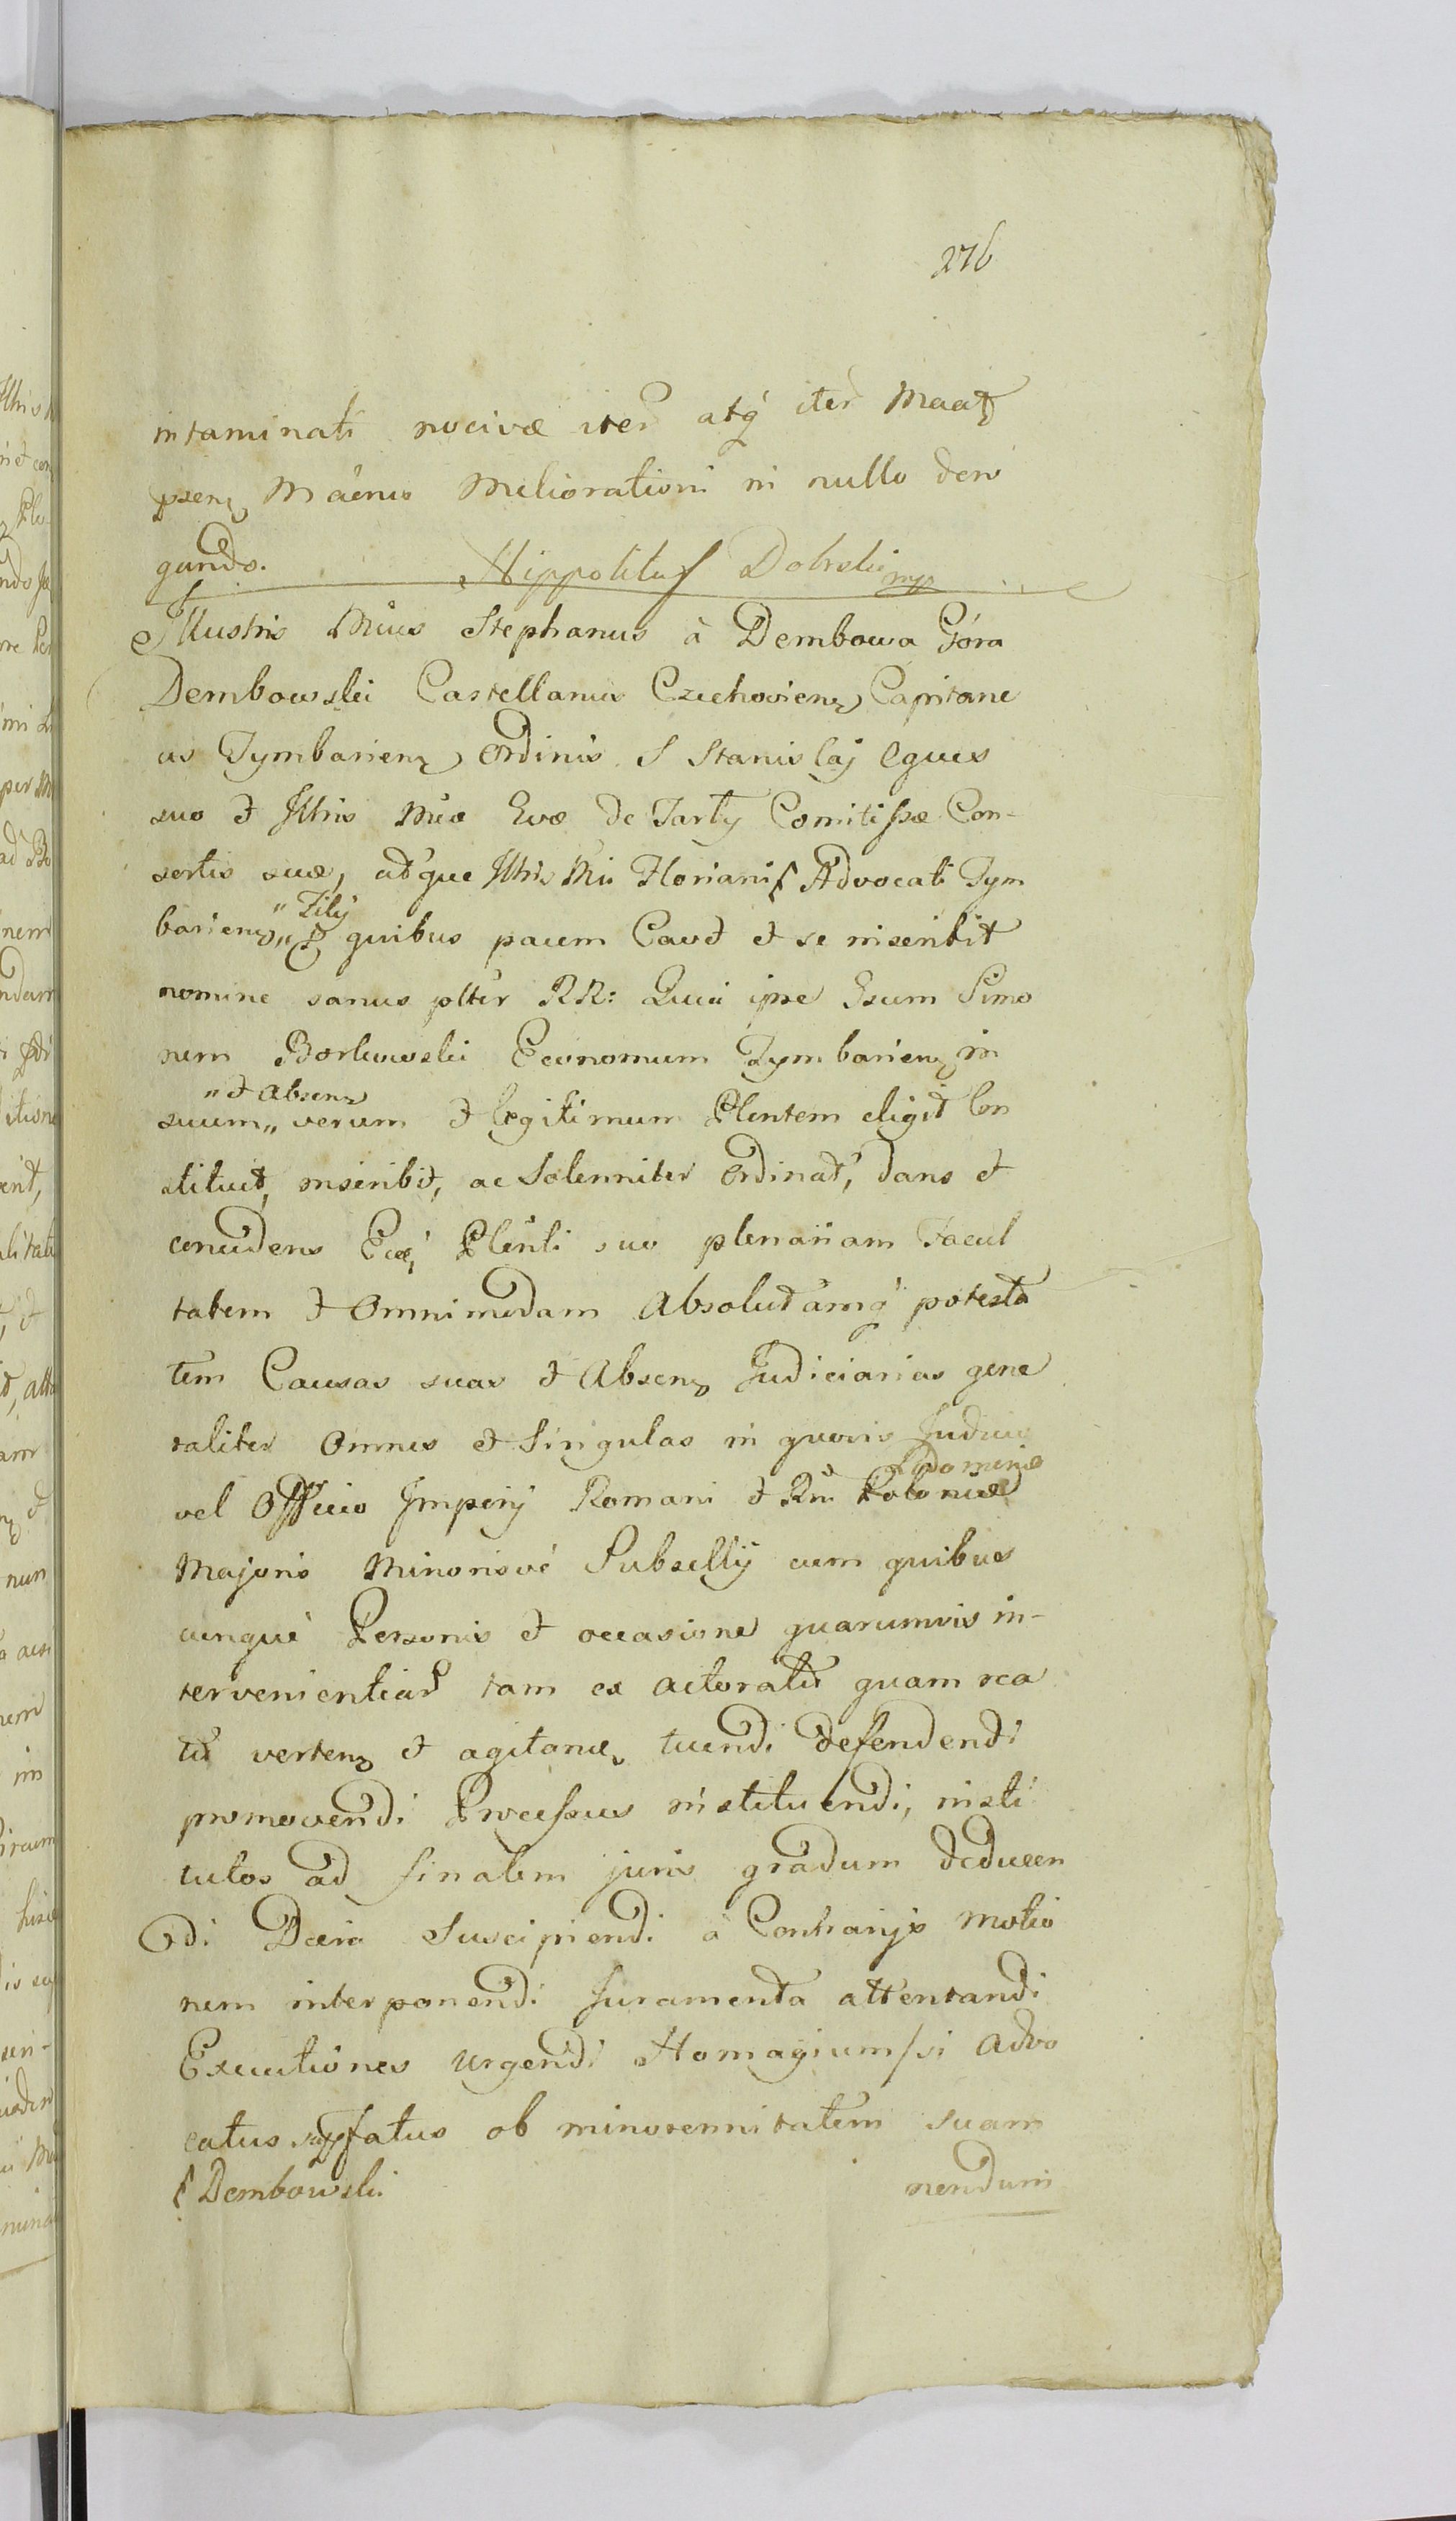 276
intaminati nocivæ iter atq́ iter Maat
psenz Máenus Meliorationi in nullo dero
gando. Hippolitus Dobrski mp
Illustris Mńus Stephanus à Dembowa Góra
Dembowski Castellanus Czechovienz Capitane
us Tymbarienz Ordinis S Stanislaj Eques
suo et Illris Mńæ Evæ de Tarły Comitissæ Con-
sortis suæ, atque Illris Mńi Floriani Advocati Tym
barienz „ Filij
quibus pacem Cavet et se inscribit
nomine sanus pltér RR: Quia ipse Gsum Simo
nem Borkowski Economum Tymbarienz in
„ et Absenz
suum „ verum et legitimum Plentem eligit Con
stituit, inscribit, ac Solenniter Ordinat, dans et
concedens Plenti suo plenariam Facul
tatem et Omnimodam Absolutamq́ potesta
tem Causas suas et Absenz Judiciarias gene
raliter Omnes et Singulas in quovis Judicio
vel Officio Imperij Romani et Rni Poloniæ
Majoris Minorisve Subsellij cum quibus
cunque Personis et occasione quarumvis in-
tervenientiar tam ex actoratu quam rea
tu vertenz et agitanz tuendi defendendi
promovendi Processus instituendi, insti
tutos ad finalem juris gradum deducen
di Dcera Suscipiendi à Contrarijs Motio
nem interponendi Juramenta attentandi
Executiones urgendi Homagium si Advo
catus supfatus ob minorennitatem suam
Dembowski
nendum